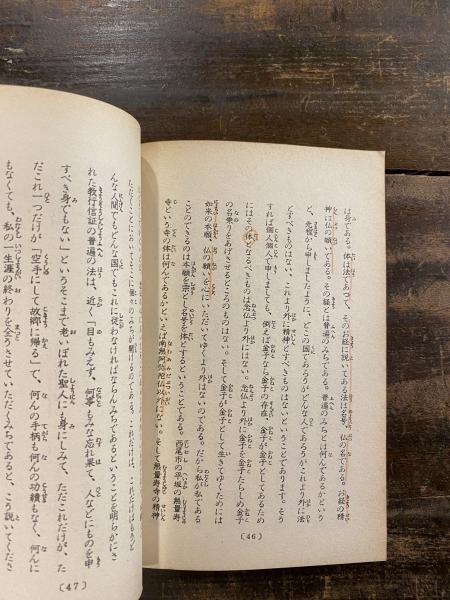 は号である。体は法であつて、そのお経に説いてある法は名号、仏の名である。お経の精
神は仏の願いである。その経とは普遍のみちである。普遍のみちとは何んであるかという
と、先程から申しましたように、どこの国であろうがどんな人であろうがこれより外に法
とすべきものはない、これより外に精神とすべきものはないということであります。そう
すれば個人個人で申しましても、例えば金子なら金子の存在、金子が金子としてあるため
にはその体となるべきものは念仏より外にはない。念仏より外に金子を金子たらしめ金子
の名乗りをあげさせるところのものはない。そして金子が金子として生きてゆくためには
如来の本願、仏の願いを心にいただいてゆくより外はないのである。だから私が私である
ことのできるのは本願を宗とし名号を体とするということである。西尾市の平坂の無量寿
寺という寺の体は何んであるかといえば南無阿弥陀仏以外にはない。そして無量寿寺の精神
(46)
ただくことにおいてはじめてそこに惟一のみちが開けるのである。これだけは、これだけはもうど
んな人間でもどんな国でもこれに従わなければならんみちであるということを明らかにさ
れた教行信証の普遍の法は、近く「目もみえず、何事もみな忘れ果て、人などにものを申
すべき身でもない」というそこまで老いぼれた聖人にも身にしみて、ただこれだけが、た
だこれ一つだけが「空手にして故郷に帰る」て、何んの手柄も何んの功績もなく、何んに
もなくても、私の一生涯の終わりを全うさせていただくみちであると、こう説いてくださ
(47)